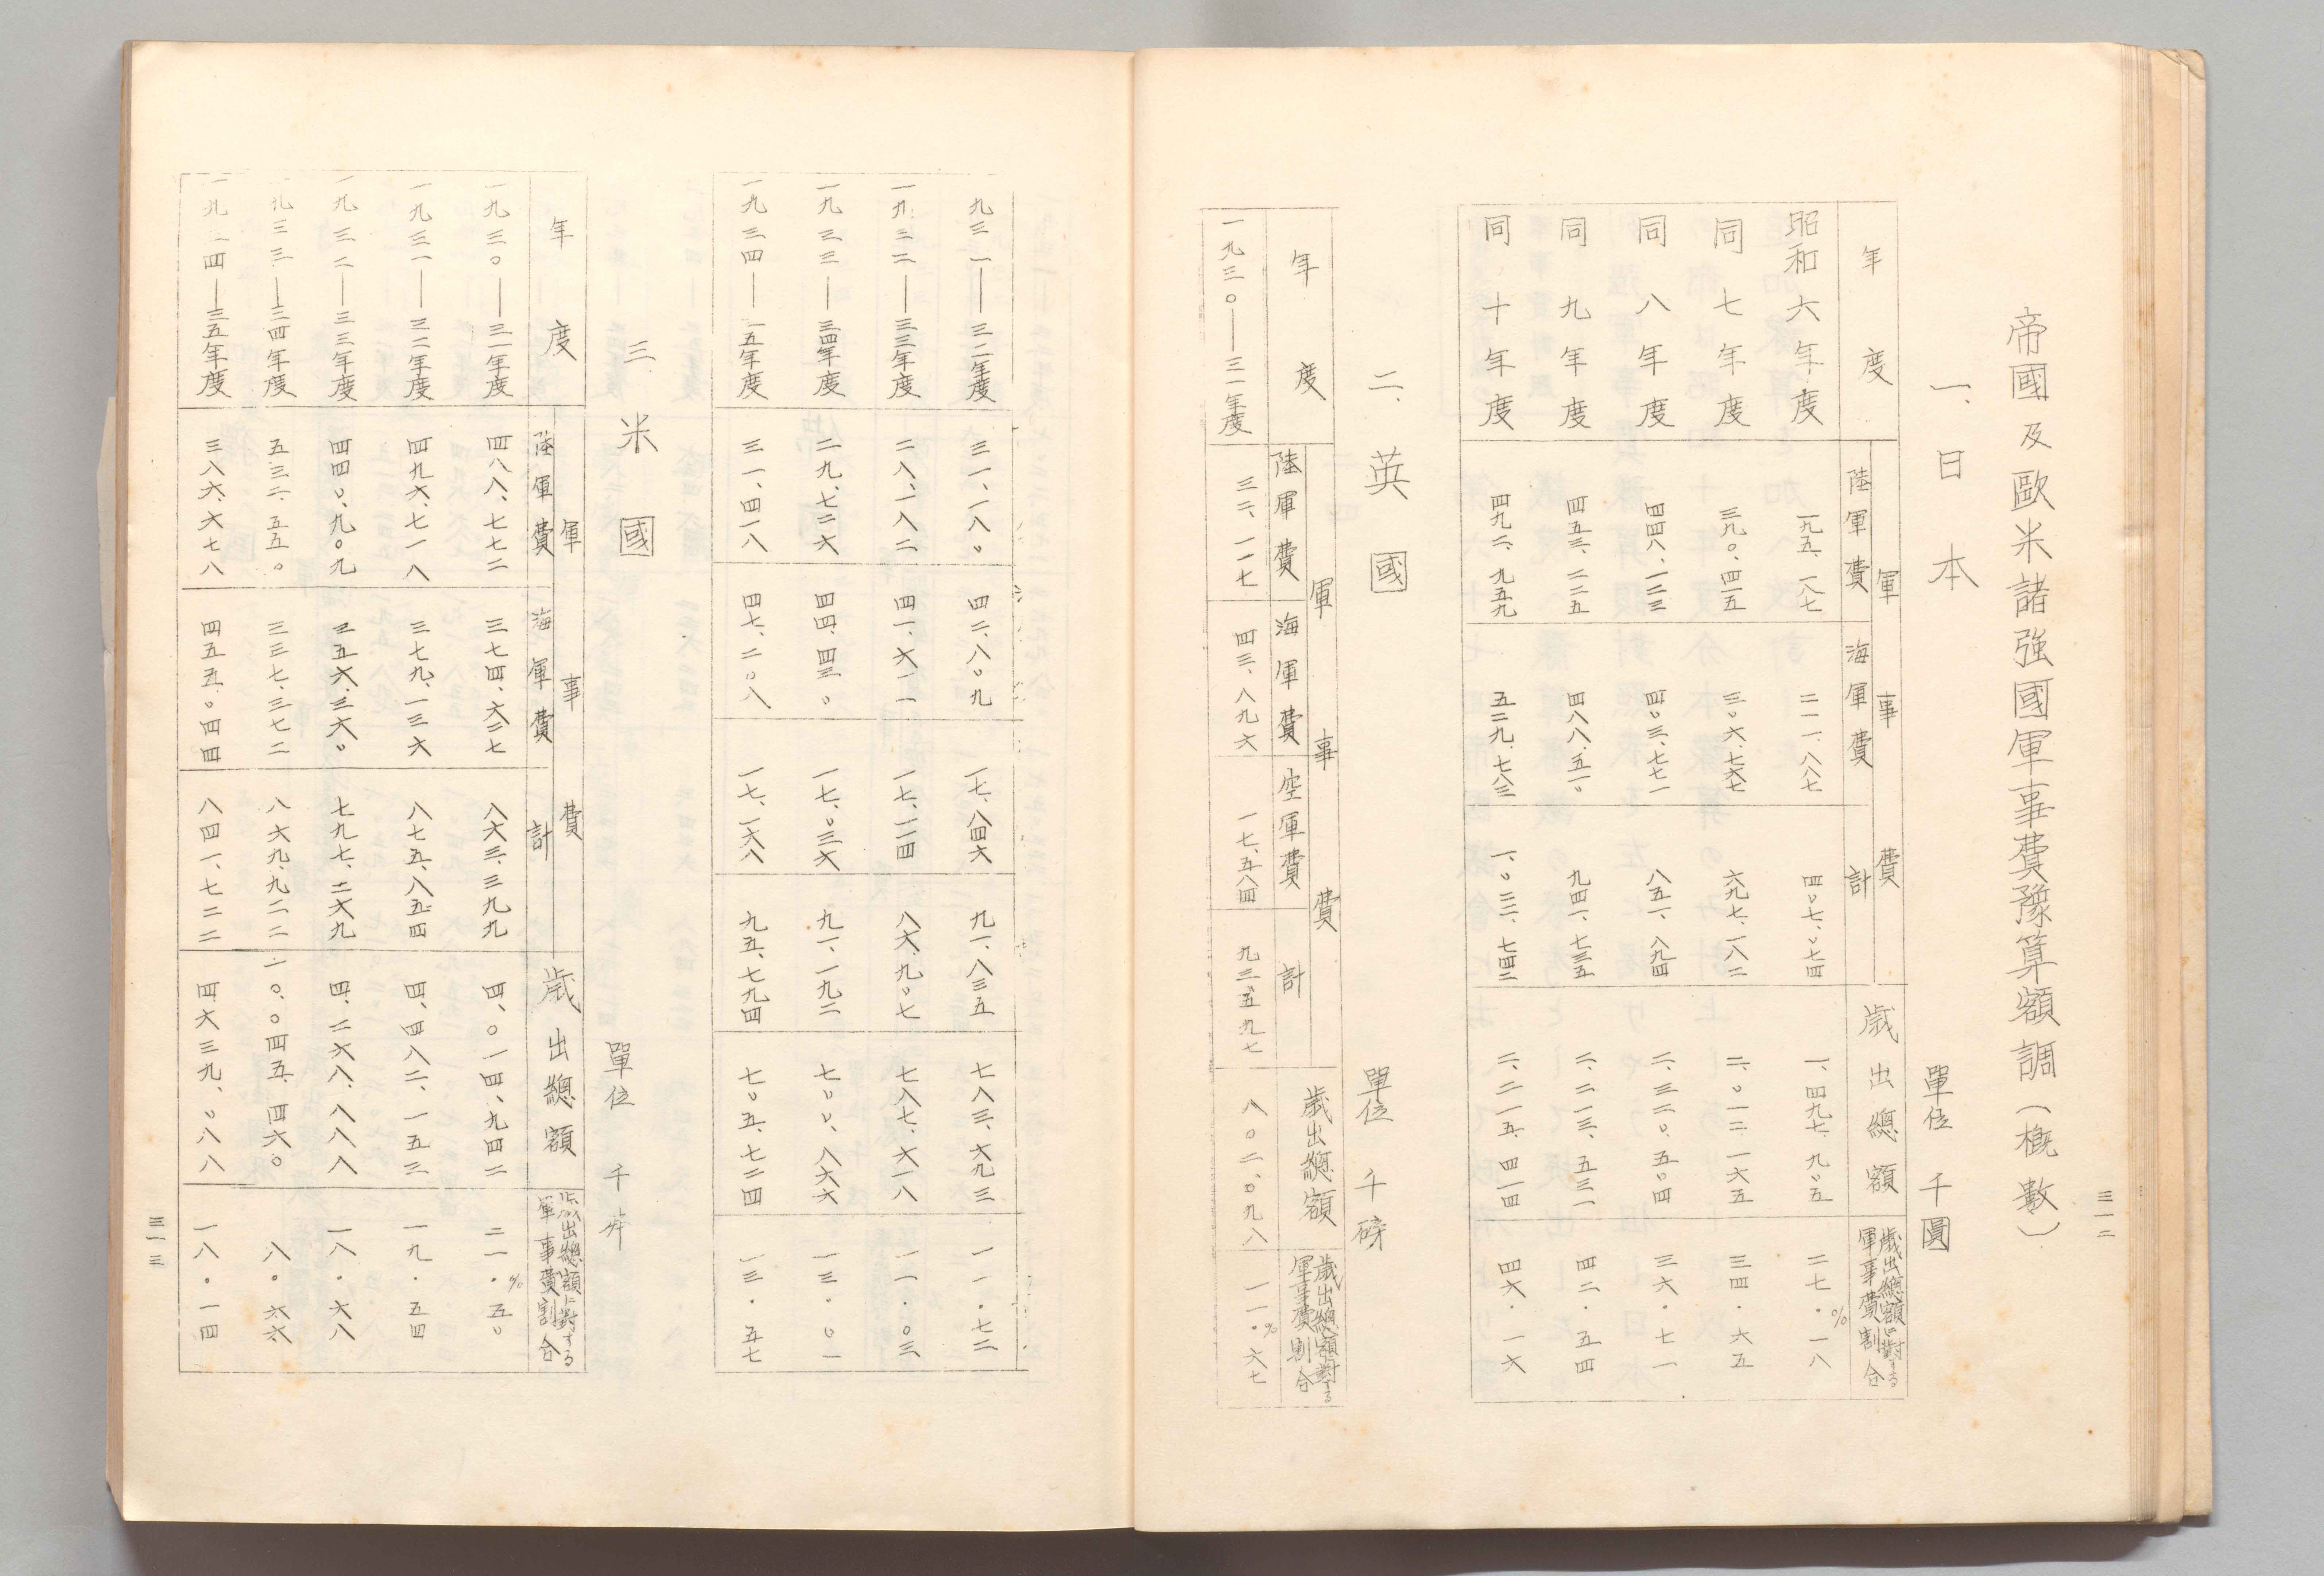 三一二
帝國及歐米諸強國軍事費豫算額調(概數)
一、日本
單位 千圓
年度
軍事費
陸軍費
海軍費
計
歳出總額
歳出總額に對する
軍事費割合
昭和六年度 一九五、一八七 二一一、八八七 四〇七、〇七四 一、四九七、九〇五 二七・一八%
同七年度 三九〇、四一五 三〇六、七六七 六九七、一八二 二、〇一二、一六五 三四・六五
同八年度 四四八、一二三 四〇三、七七一 八五一、八九四 二、三二〇、五〇四 三六・七一
同九年度 四五三、二二五 四八八、五一〇 九四一、七三五 二、二一三、五三一 四二・五四
同十年度 四九二、九五九 五二九、七八三 一、〇二二、七四二 二、二一五、四一四 四六・一六
二、英國
單位 千磅
年度
軍事費
陸軍費
海軍費
空軍費
計
歳出總額
歳出總額に對する
軍事費割合
一九三〇――三一年度 三二、一一七 四三、八九六 一七、五八四 九三、五九七 八〇二、〇九八 一一・六七%
九三一――三二年度 三一、一八〇 四二、八〇九 一七、八四六 九一、八三五 七八三、六九三 一一・七二
一九三二――三三年度 二八、一八二 四一、六一一 一七、一一四 八六、九〇七 七八七、六一八 一一・〇三
一九三三――三四年度 二九、七二六 四四、四三〇 一七、〇三六 九一、一九二 七〇〇、八六六 一三・〇一
一九三四――三五年度 三一、四一八 四七、二〇八 一七、一六八 九五、七九四 七〇五、七二四 一三・五七
三 米國
單位 千弗
年度
軍事費
陸軍費
海軍費
計
歳出總額
歳出總額に對する
軍事費割合
一九三〇――三一年度 四八八、七七二 三七四、六二七 八六三、三九九 四、〇一四、九四二 二一・五〇%
一九三一――三二年度 四九六、七一八 三七九、一三六 八七五、八五四 四、四八二、一五三 一九・五四
一九三二――三三年度 四四〇、九〇九 三五六、三六〇 七九七、二六九 四、二六八、八八八 一八・六八
一九三三――三四年度 五三二、五五〇 三三七、三七二 八六九、九二二 一〇、〇四五、四六〇 八・六六
一九三四――三五年度 三八六、六七八 四五五、〇四四 八四一、七二二 四、六三九、〇八八 一八・一四
三一三